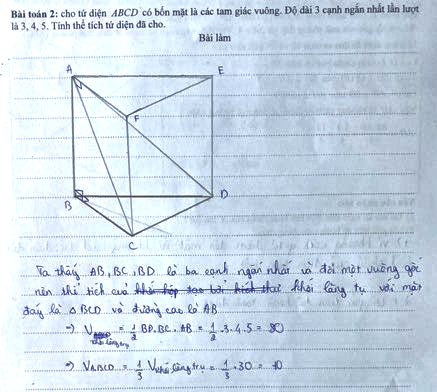 Bài toán 2: cho tứ diện ABCD có bốn mặt là các tam giác vuông. Độ dài 3 cạnh ngắn nhất lần lượt
là 3, 4, 5. Tính thể tích tứ diện đã cho.
Bài làm
A
E
F
B
D
C
Ta thấy AB, BC, BD là ba cạnh ngắn nhất và đôi một vuông góc
nên thể tích của khối hộp tạo bởi hình khối lăng trụ với mặt
đáy là Δ BCD và đường cao là AB
=> V khối lăng trụ = 1/2 BD.BC.AB = 1/2 .3.4.5 = 30
=> VABCD = 1/3 V khối lăng trụ = 1/3 .30 = 10